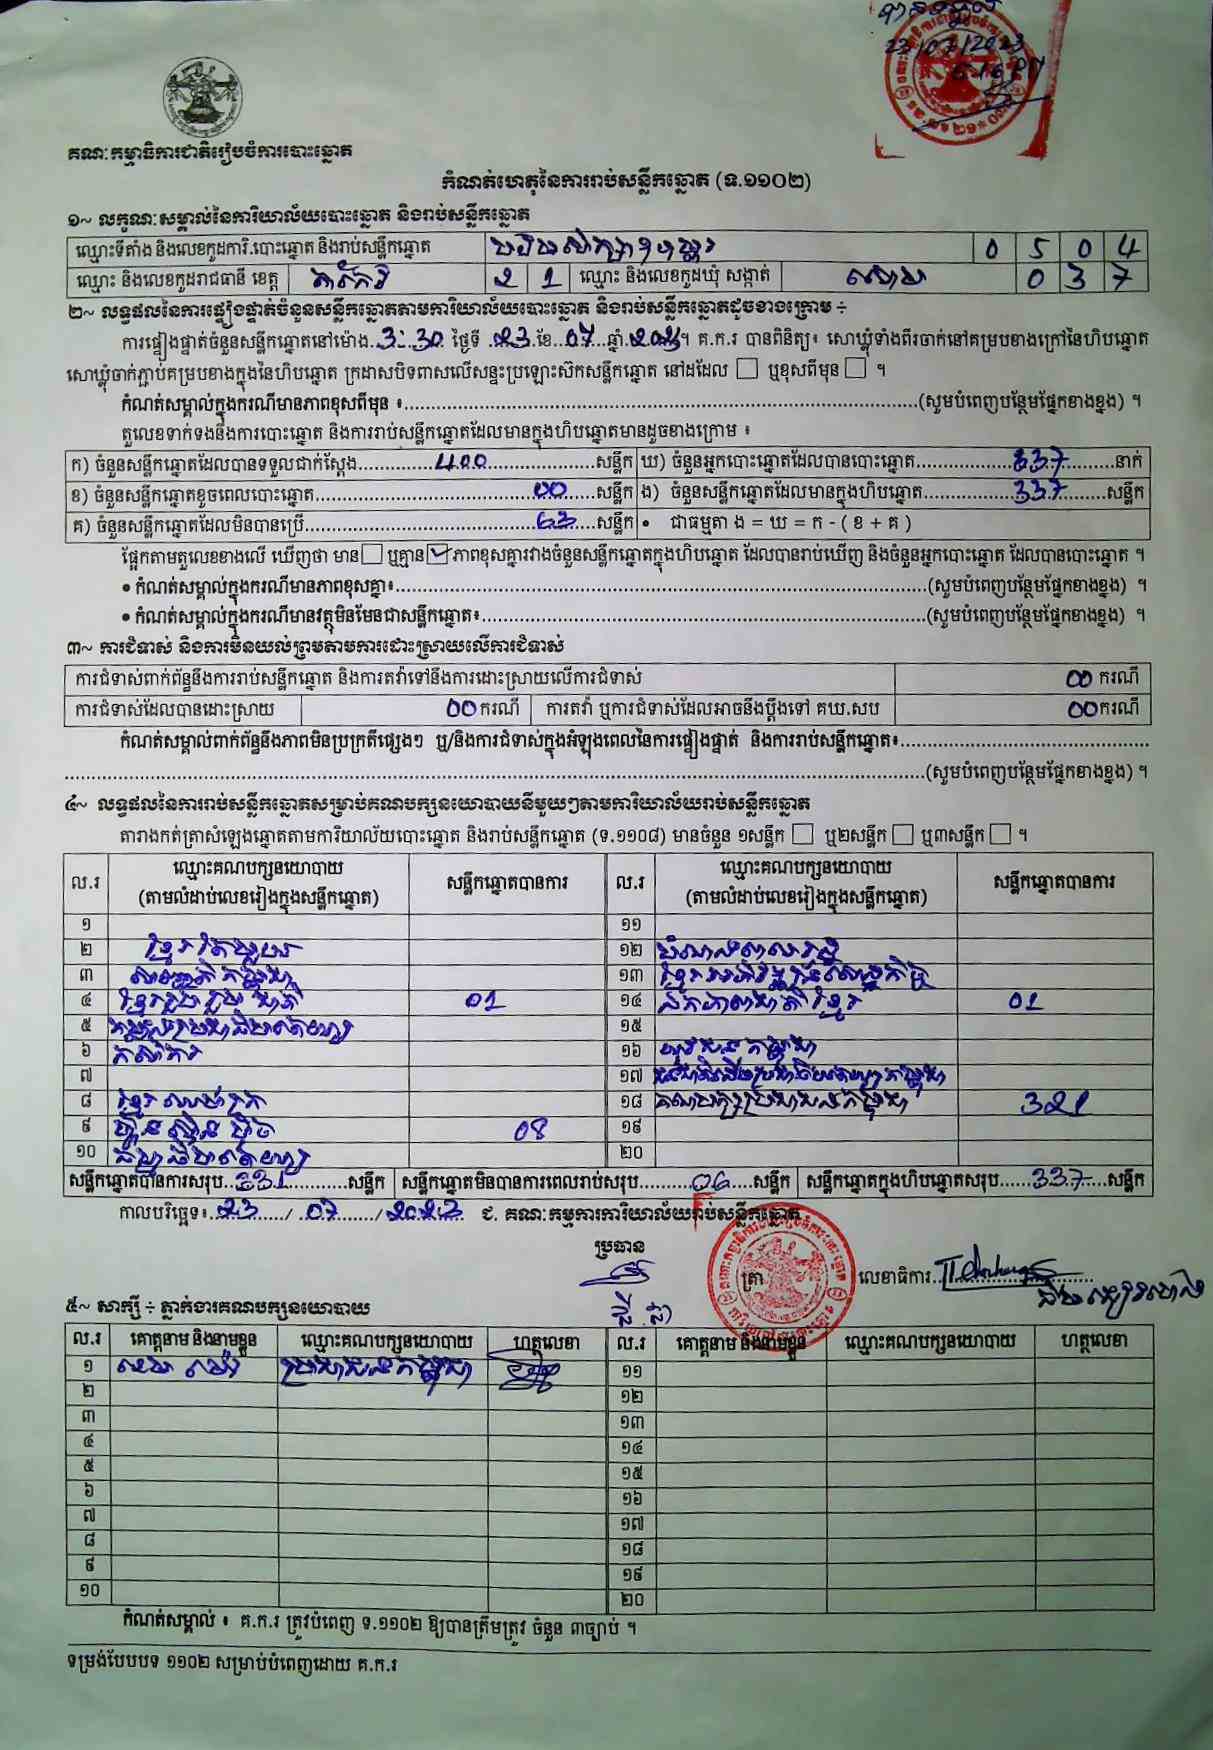 23/07/2023
គណៈកម្មាធិការជាតិរៀបចំការបោះឆ្នោត
កំណត់ហេតុនៃការរាប់សន្លឹកឆ្នោត (ទ.១១០២)
១~ លក្ខណៈសម្គាល់នៃការិយាល័យបោះឆ្នោត និងរាប់សន្លឹកឆ្នោត
ឈ្មោះទីតាំង និងលេខកូដការិ.បោះឆ្នោត និងរាប់សន្លឹកឆ្នោត 0 5 0 4
ឈ្មោះ និងលេខកូដរាជធានី ខេត្ត តាកែវ 2 1 ឈ្មោះ និងលេខកូដឃុំ សង្កាត់ 0 3 7
២~ លទ្ធផលនៃការផ្ទៀងផ្ទាត់ចំនួនសន្លឹកឆ្នោតតាមការិយាល័យបោះឆ្នោត និងរាប់សន្លឹកឆ្នោតដូចខាងក្រោម ÷
ការផ្ទៀងផ្ទាត់ចំនួនសន្លឹកឆ្នោតនៅម៉ោង 3:30 ថ្ងៃទី 23 ខែ 07 ឆ្នាំ 2023 ។ គ.ក.រ បានពិនិត្យ៖ សោឃ្លុំទាំងពីរចាក់នៅគម្របខាងក្រៅនៃហិបឆ្នោត
សោឃ្លុំចាក់ភ្ជាប់គម្របខាងក្នុងនៃហិបឆ្នោត ក្រដាសបិទពាសលើសន្ទះប្រឡោះស៊កសន្លឹកឆ្នោត នៅដដែល ☐ ឬខុសពីមុន ☐ ។
កំណត់សម្គាល់ក្នុងករណីមានភាពខុសពីមុន ៖ (សូមបំពេញបន្ថែមផ្នែកខាងខ្នង) ។
តួលេខទាក់ទងនឹងការបោះឆ្នោត និងការរាប់សន្លឹកឆ្នោតដែលមានក្នុងហិបឆ្នោតមានដូចខាងក្រោម ៖
ក) ចំនួនសន្លឹកឆ្នោតដែលបានទទួលជាក់ស្តែង 400 សន្លឹក ឃ) ចំនួនអ្នកបោះឆ្នោតដែលបានបោះឆ្នោត 337 នាក់
ខ) ចំនួនសន្លឹកឆ្នោតខូចពេលបោះឆ្នោត 00 សន្លឹក ង) ចំនួនសន្លឹកឆ្នោតដែលមានក្នុងហិបឆ្នោត 337 សន្លឹក
គ) ចំនួនសន្លឹកឆ្នោតដែលមិនបានប្រើ 63 សន្លឹក • ជាធម្មតា ង = ឃ = ក - ( ខ + គ )
ផ្អែកតាមតួលេខខាងលើ ឃើញថា មាន ☐ ឬគ្មាន ☑ ភាពខុសគ្នារវាងចំនួនសន្លឹកឆ្នោតក្នុងហិបឆ្នោត ដែលបានរាប់ឃើញ និងចំនួនអ្នកបោះឆ្នោត ដែលបានបោះឆ្នោត ។
• កំណត់សម្គាល់ក្នុងករណីមានភាពខុសគ្នា៖ (សូមបំពេញបន្ថែមផ្នែកខាងខ្នង) ។
• កំណត់សម្គាល់ក្នុងករណីមានវត្ថុមិនមែនជាសន្លឹកឆ្នោត៖ (សូមបំពេញបន្ថែមផ្នែកខាងខ្នង) ។
៣~ ការជំទាស់ និងការមិនយល់ព្រមតាមការដោះស្រាយលើការជំទាស់
ការជំទាស់ពាក់ព័ន្ធនឹងការរាប់សន្លឹកឆ្នោត និងការតវ៉ាទៅនឹងការដោះស្រាយលើការជំទាស់ 00 ករណី
ការជំទាស់ដែលបានដោះស្រាយ 00 ករណី ការតវ៉ា ឬការជំទាស់ដែលអាចនឹងប្តឹងទៅ គឃ.សប 00 ករណី
កំណត់សម្គាល់ពាក់ព័ន្ធនឹងភាពមិនប្រក្រតីផ្សេងៗ ឬ/និងការជំទាស់ក្នុងអំឡុងពេលនៃការផ្ទៀងផ្ទាត់ និងការរាប់សន្លឹកឆ្នោត៖
(សូមបំពេញបន្ថែមផ្នែកខាងខ្នង) ។
៤~ លទ្ធផលនៃការរាប់សន្លឹកឆ្នោតសម្រាប់គណបក្សនយោបាយនីមួយៗតាមការិយាល័យរាប់សន្លឹកឆ្នោត
តារាងកត់ត្រាសំឡេងឆ្នោតតាមការិយាល័យបោះឆ្នោត និងរាប់សន្លឹកឆ្នោត (ទ.១១០៨) មានចំនួន ១សន្លឹក ☐ ឬ២សន្លឹក ☐ ឬ៣សន្លឹក ☐ ។
ល.រ ឈ្មោះគណបក្សនយោបាយ (តាមលំដាប់លេខរៀងក្នុងសន្លឹកឆ្នោត) សន្លឹកឆ្នោតបានការ ល.រ ឈ្មោះគណបក្សនយោបាយ (តាមលំដាប់លេខរៀងក្នុងសន្លឹកឆ្នោត) សន្លឹកឆ្នោតបានការ
១ ១១
២ ខ្មែរតែមួយ ១២
៣ ១៣ ខ្មែរអភិវឌ្ឍន៍សេដ្ឋកិច្ច
៤ ខ្មែររួបរួមជាតិ 01 ១៤ ឯកភាពជាតិខ្មែរ 01
៥ ១៥
៦ កសិករ ១៦ យុវជនកម្ពុជា
៧ ១៧
៨ ខ្មែរឈប់ក្រ ១៨ គណបក្សប្រជាជនកម្ពុជា 321
៩ ហ្វ៊ុនស៊ិនប៉ិច 08 ១៩
១០ ២០
សន្លឹកឆ្នោតបានការសរុប 331 សន្លឹក សន្លឹកឆ្នោតមិនបានការពេលរាប់សរុប 06 សន្លឹក សន្លឹកឆ្នោតក្នុងហិបឆ្នោតសរុប 337 សន្លឹក
កាលបរិច្ឆេទ៖ 23 / 07 / 2023 ជ. គណៈកម្មការការិយាល័យរាប់សន្លឹកឆ្នោត
ប្រធាន
ត្រា លេខាធិការ
៥~ សាក្សី ÷ ភ្នាក់ងារគណបក្សនយោបាយ
ល.រ គោត្តនាម និងនាមខ្លួន ឈ្មោះគណបក្សនយោបាយ ហត្ថលេខា ល.រ គោត្តនាម និងនាមខ្លួន ឈ្មោះគណបក្សនយោបាយ ហត្ថលេខា
១ ប្រជាជនកម្ពុជា ១១
២ ១២
៣ ១៣
៤ ១៤
៥ ១៥
៦ ១៦
៧ ១៧
៨ ១៨
៩ ១៩
១០ ២០
កំណត់សម្គាល់ ៖ គ.ក.រ ត្រូវបំពេញ ទ.១១០២ ឱ្យបានត្រឹមត្រូវ ចំនួន ៣ច្បាប់ ។
ទម្រង់បែបបទ ១១០២ សម្រាប់បំពេញដោយ គ.ក.រ